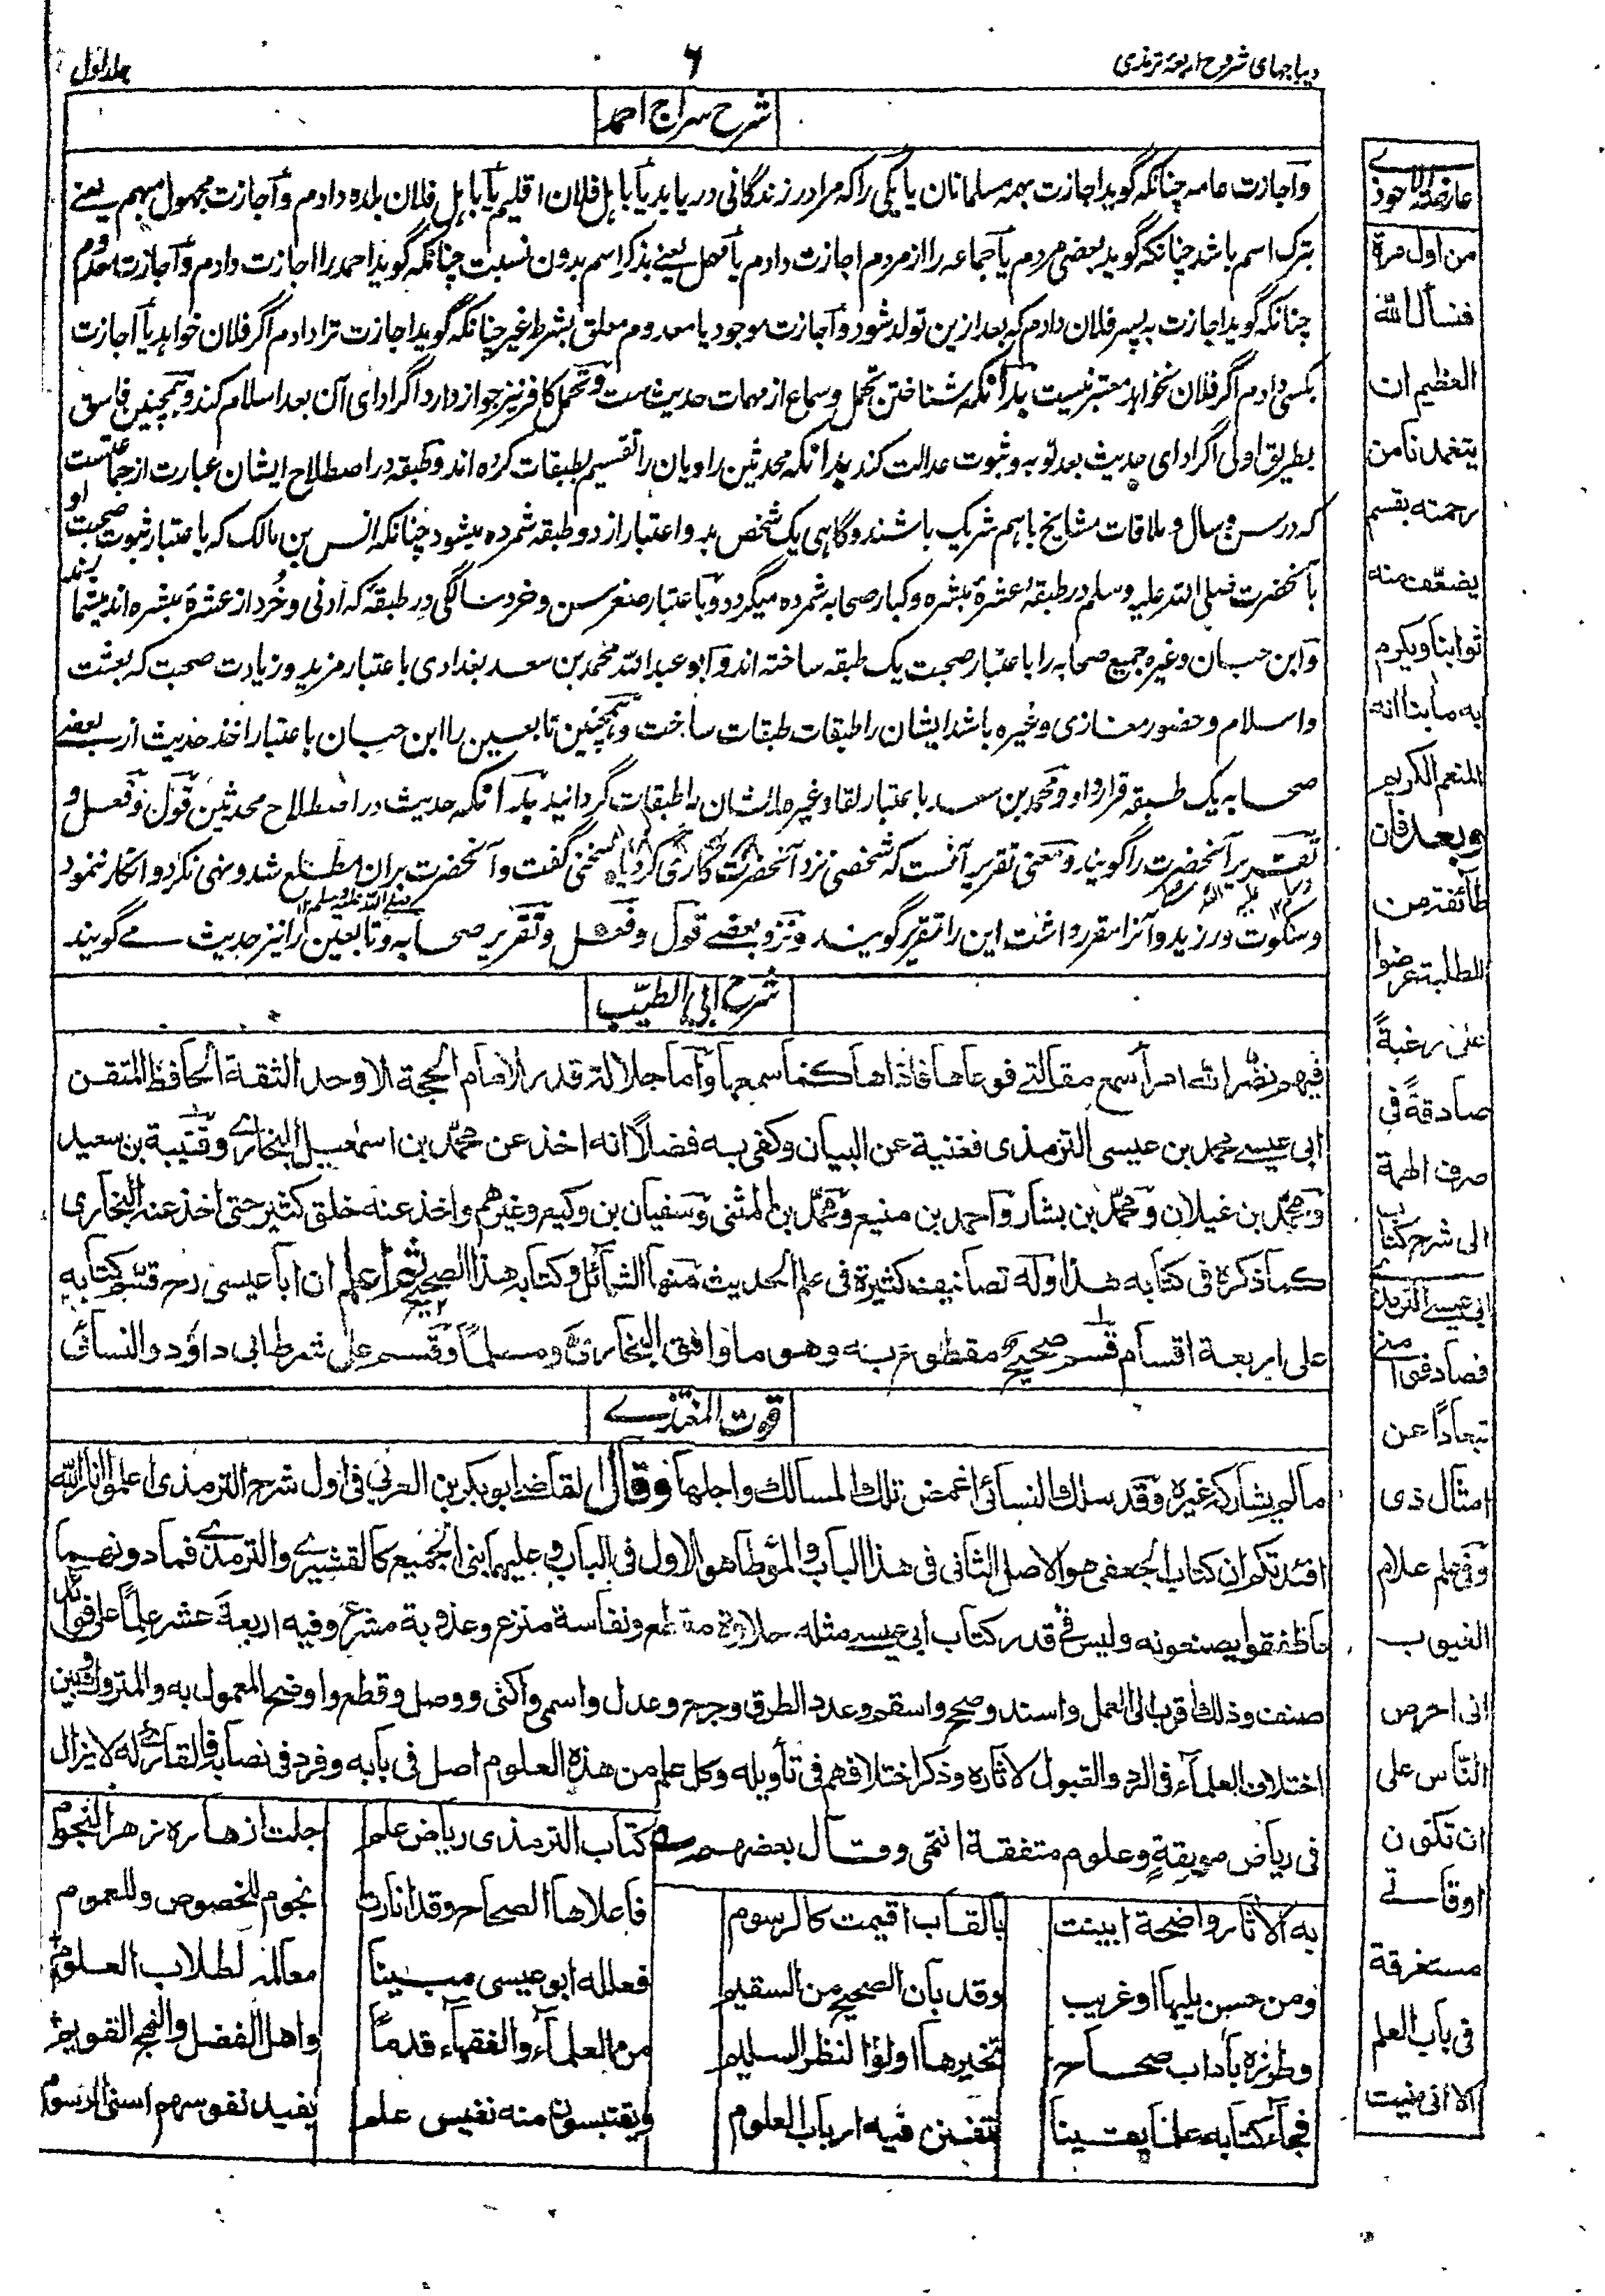 دیباجهای شروح اربعهٔ ترمذی
۶
جلد اول
شرح سراج احمد
وآجازت عامه چنانکه گوید اجازت بهمه مسلمانان یا یکی را که مرا در زندگانی دریابد یآ باهل فلان اقلیم یآ باهل فلان بلده دادم وآجازت مجهول مبهم یعنے
بترک اسم باشد چنانکه گوید بعضی مردم یآ جماعه را از مردم اجازت دادم یآ مهمل یعنے بذکر اسم بدون نسبت چنانکه گوید احمد را اجازت دادم وآجازت معدوم
چنانکه گوید اجازت به پسر فلان دادم که بعد ازین تولد شود وآجازت موجود یا معدوم معلق بشرط غیر چنانکه گوید اجازت ترا دادم اگر فلان خواهد یآ اجازت
بکسی دادم اگر فلان نخواهد معتبر نیست بدآنکه شناختن تحمل وسماع از مهمات حدیث ست وتحمل کافر نیز جواز دارد اگر ادای آن بعد اسلام کند وهمچنین فاسق
بطریق اولی اگر ادای حدیث بعد توبه وثبوت عدالت کند بدآنکه محدثین راویان را تقسیم بطبقات کرده اند وطبقه در اصطلاح ایشان عبارت از جماعتست
که در سن وسال وملاقات مشایخ باهم شریک باشند وگاهی یک شخص بدو اعتبار از دو طبقه شمرده میشود چنانکه انس بن مالک که باعتبار ثبوت صحبت او
بآنحضرت صلی الله علیه وسلم در طبقهٔ عشرهٔ مبشره وکبار صحابه شمرده میگردد وبآعتبار صغر سن وخرد سالگی در طبقهٔ که ادنی وخُرد از عشرهٔ مبشره اند میشمارند
وآبن حبان وغیره جمیع صحابه را باعتبار صحبت یک طبقه ساخته اند وآبو عبد الله محمد بن سعد بغدادی باعتبار مزید وزیادت صحبت که بعثت
واسلام وحضور مغازی وغیره باشد ایشان را طبقات طبقات ساخت وهمچنین تابعین را ابن حبان باعتبار اخذ حدیث از بعضے
صحابه یک طبقه قرار داد ومحمد بن سعد باعتبار لقا وغیره حالات شان را طبقات گردانید بدآنکه حدیث در اصطلاح محدثین قول وفعل و
تقریر آنحضرت را گویند ومعنی تقریر آنست که شخصی نزد آنحضرت کاری کرد یا سخنی گفت وآنحضرت بران مطلع شد ونهی نکرد وانکار ننمود
صلے الله علیه وسلم
وسکوت ورزید وآنرا مقرر داشت این را تقریر گویند ونزد بعضے قول وفعل وتقریر صحابه وتابعین را نیز حدیث مے گویند
شرح ابی الطیّب
فیهم نضّر الله امرأ سمع مقالتی فوعاها فاداها کما سمعها وآما جلالة قدر الامام الحجة الاوحد الثقة الحافظ المتقن
ابی عیسے محمد بن عیسی الترمذی فغنیة عن البیان وکفی به فضلاً انه اخذ عن محمّد بن اسمٰعیل البخاری وقتیبة بن سعید
ومحمّد بن غیلان ومحمّد بن بشار وآحمد بن منیع ومحمّد بن المثنی وسفیان بن وکیع وغیرهم واخذ عنه خلق کثیر حتی اخذ عنه البخاری
کما ذکره فی کتابه هذا وله تصانیف کثیرة فی علم الحدیث منها الشمائل وکتابه هذا الصحیح ثم اعلم ان ابا عیسی رحمه قسّم کتابه
علی اربعة اقسام قسم صحیح مقطوع به وهو ما وافق البخاری ومسلماً وقسم علی شرط ابی داؤد والنسائی
قوت المغتذے
مالم یشارکه غیره وقد سلک النسائی اغمض تلک المسالک واجلها وقال القاضے ابوبکر بن العربی فی اول شرح الترمذی اعلموا انار الله
افئدتکم ان کتاب الجعفی هو الاصل الثانی فی هذا الباب والمؤطا هو الاول فی الباب وعلیهما بنی الجمیع کالقشیرے والترمذے فما دونهما
ما طفقوا یصنعونه ولیس فی قدر کتاب ابی عیسے مثله حلاوة مقطع ونفاسة منزع وعذوبة مشرع وفیه اربعة عشر علماً علی فوائد
صنف وذلک اقرب الی العمل واسند وصحح واسقم وعدد الطرق وجرح وعدل واسمی واکنی ووصل وقطع واوضح المعمول به والمتروک وبین
اختلاف العلماء فی الرد والقبول لآثاره وذکر اختلافهم فی تأویله وکل علم من هذه العلوم اصل فی بابه وفرد فی نصابه فالقارئ له لا یزال
فی ریاض مونقةٍ وعلوم متفقة انتهی وقال بعضهم
کتاب الترمذی ریاض علم
جلت ازهاره زهر النجوم
به الآثار واضحة ابینت
بالقاب اقیمت کالرسوم
فاعلاها الصحاح وقد انارت
نجوم للخصوص وللعموم
ومن حسن یلیها او غریب
وقد بان الصحیح من السقیم
فعلله ابو عیسی مبینا
معالمه لطلاب العلوم
وطرزه بآداب صحاح
تخیرها اولوا النظر السلیم
من العلماء والفقهاء قدماً
واهل الفضل والنهج القویم
فجاء کتابه علقا یقینا
تتفنن فیه ارباب العلوم
ویقتبسون منه نفیس علم
یفید نفوسهم اسنی الرسوم
عارضة الاحوذے
من اول مرة
فنسأل الله
العظیم ان
یتغمدنا من
رحمته بقسم
یضعّف منه
ثوابنا ویکرم
به مآبنا انه
المنعم الکریم
وبعد فان
طآئفة من
الطلبة عرضوا
علی رغبةً
صادقةً فی
صرف الهمة
الی شرح کتاب
ابی عیسے الترمذے
فصادفوا منی
تبعاداً عن
امثال ذی
وفی علم علام
الغیوب
انی احرص
النّاس علی
ان تکون
اوقاتے
مستغرقة
فی باب العلم
الا انی منیت